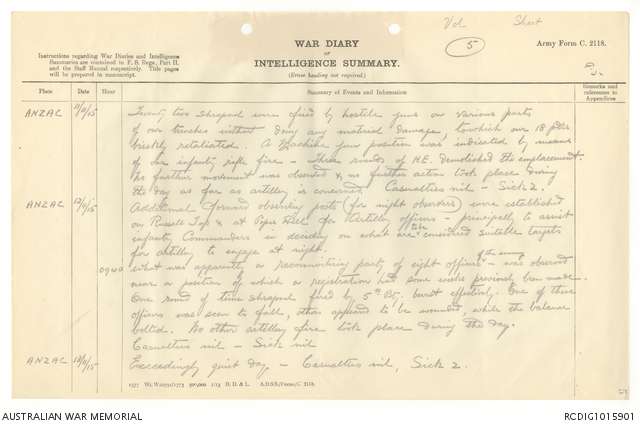 Vol Sheet
5
Army Form C. 2118.
WAR DIARY
or
INTELLIGENCE SUMMARY.
(Erase heading not required.)
Instructions regarding War Diaries and Intelligence
Summaries are contained in F. S. Regs., Part II.
and the Staff Manual respectively. Title pages
will be prepared in manuscript.
Place Date Hour Summary of Events and Information Remarks and references to Appendices
ANZAC
Twenty two shrapnel were fired by hostile guns on various parts
of our trenches without doing any material damage, to which our 18 pdrs
briskly retaliated. A Machine gun position was indicated by means
of our infantry rifle fire - Three rounds of H.E. demolished the emplacement.
No further movement was observed & no further action took place during
the day as far as artillery is concerned. Casualties nil - Sick 2.
ANZAC
Additional forward observing posts (for night observers) were established
on Russell Top & at Popes Hill for Artillery officers - principally to assist
infantry Commanders in deciding on what are to be considered suitable targets
for artillery to engage at night.
0940
What was apparently a reconnoitring party of eight officers of the enemy - was observed
near a position of which a registration had some weeks previously been made.
One round of time shrapnel fired by 5th Bty. burst effectively. One of these
officers was seen to fall, others appeared to be wounded, while the balance
bolted. No other artillery fire took place during the day.
Casualties nil - Sick nil
ANZAC
Exceedingly quiet day - Casualties nil, Sick 2.
AUSTRALIAN WAR MEMORIAL
RCDIG1015901